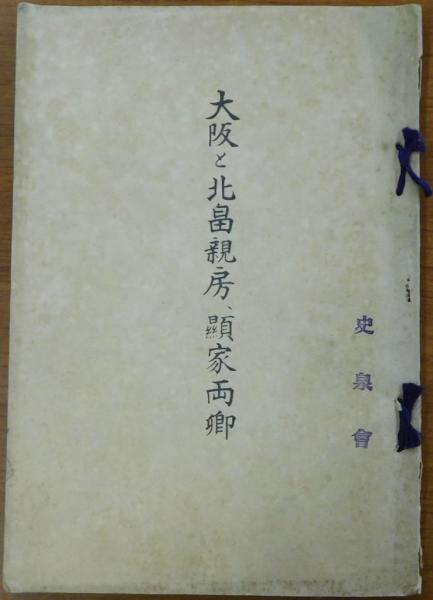 大阪と北畠親房、顯家両卿
史泉會